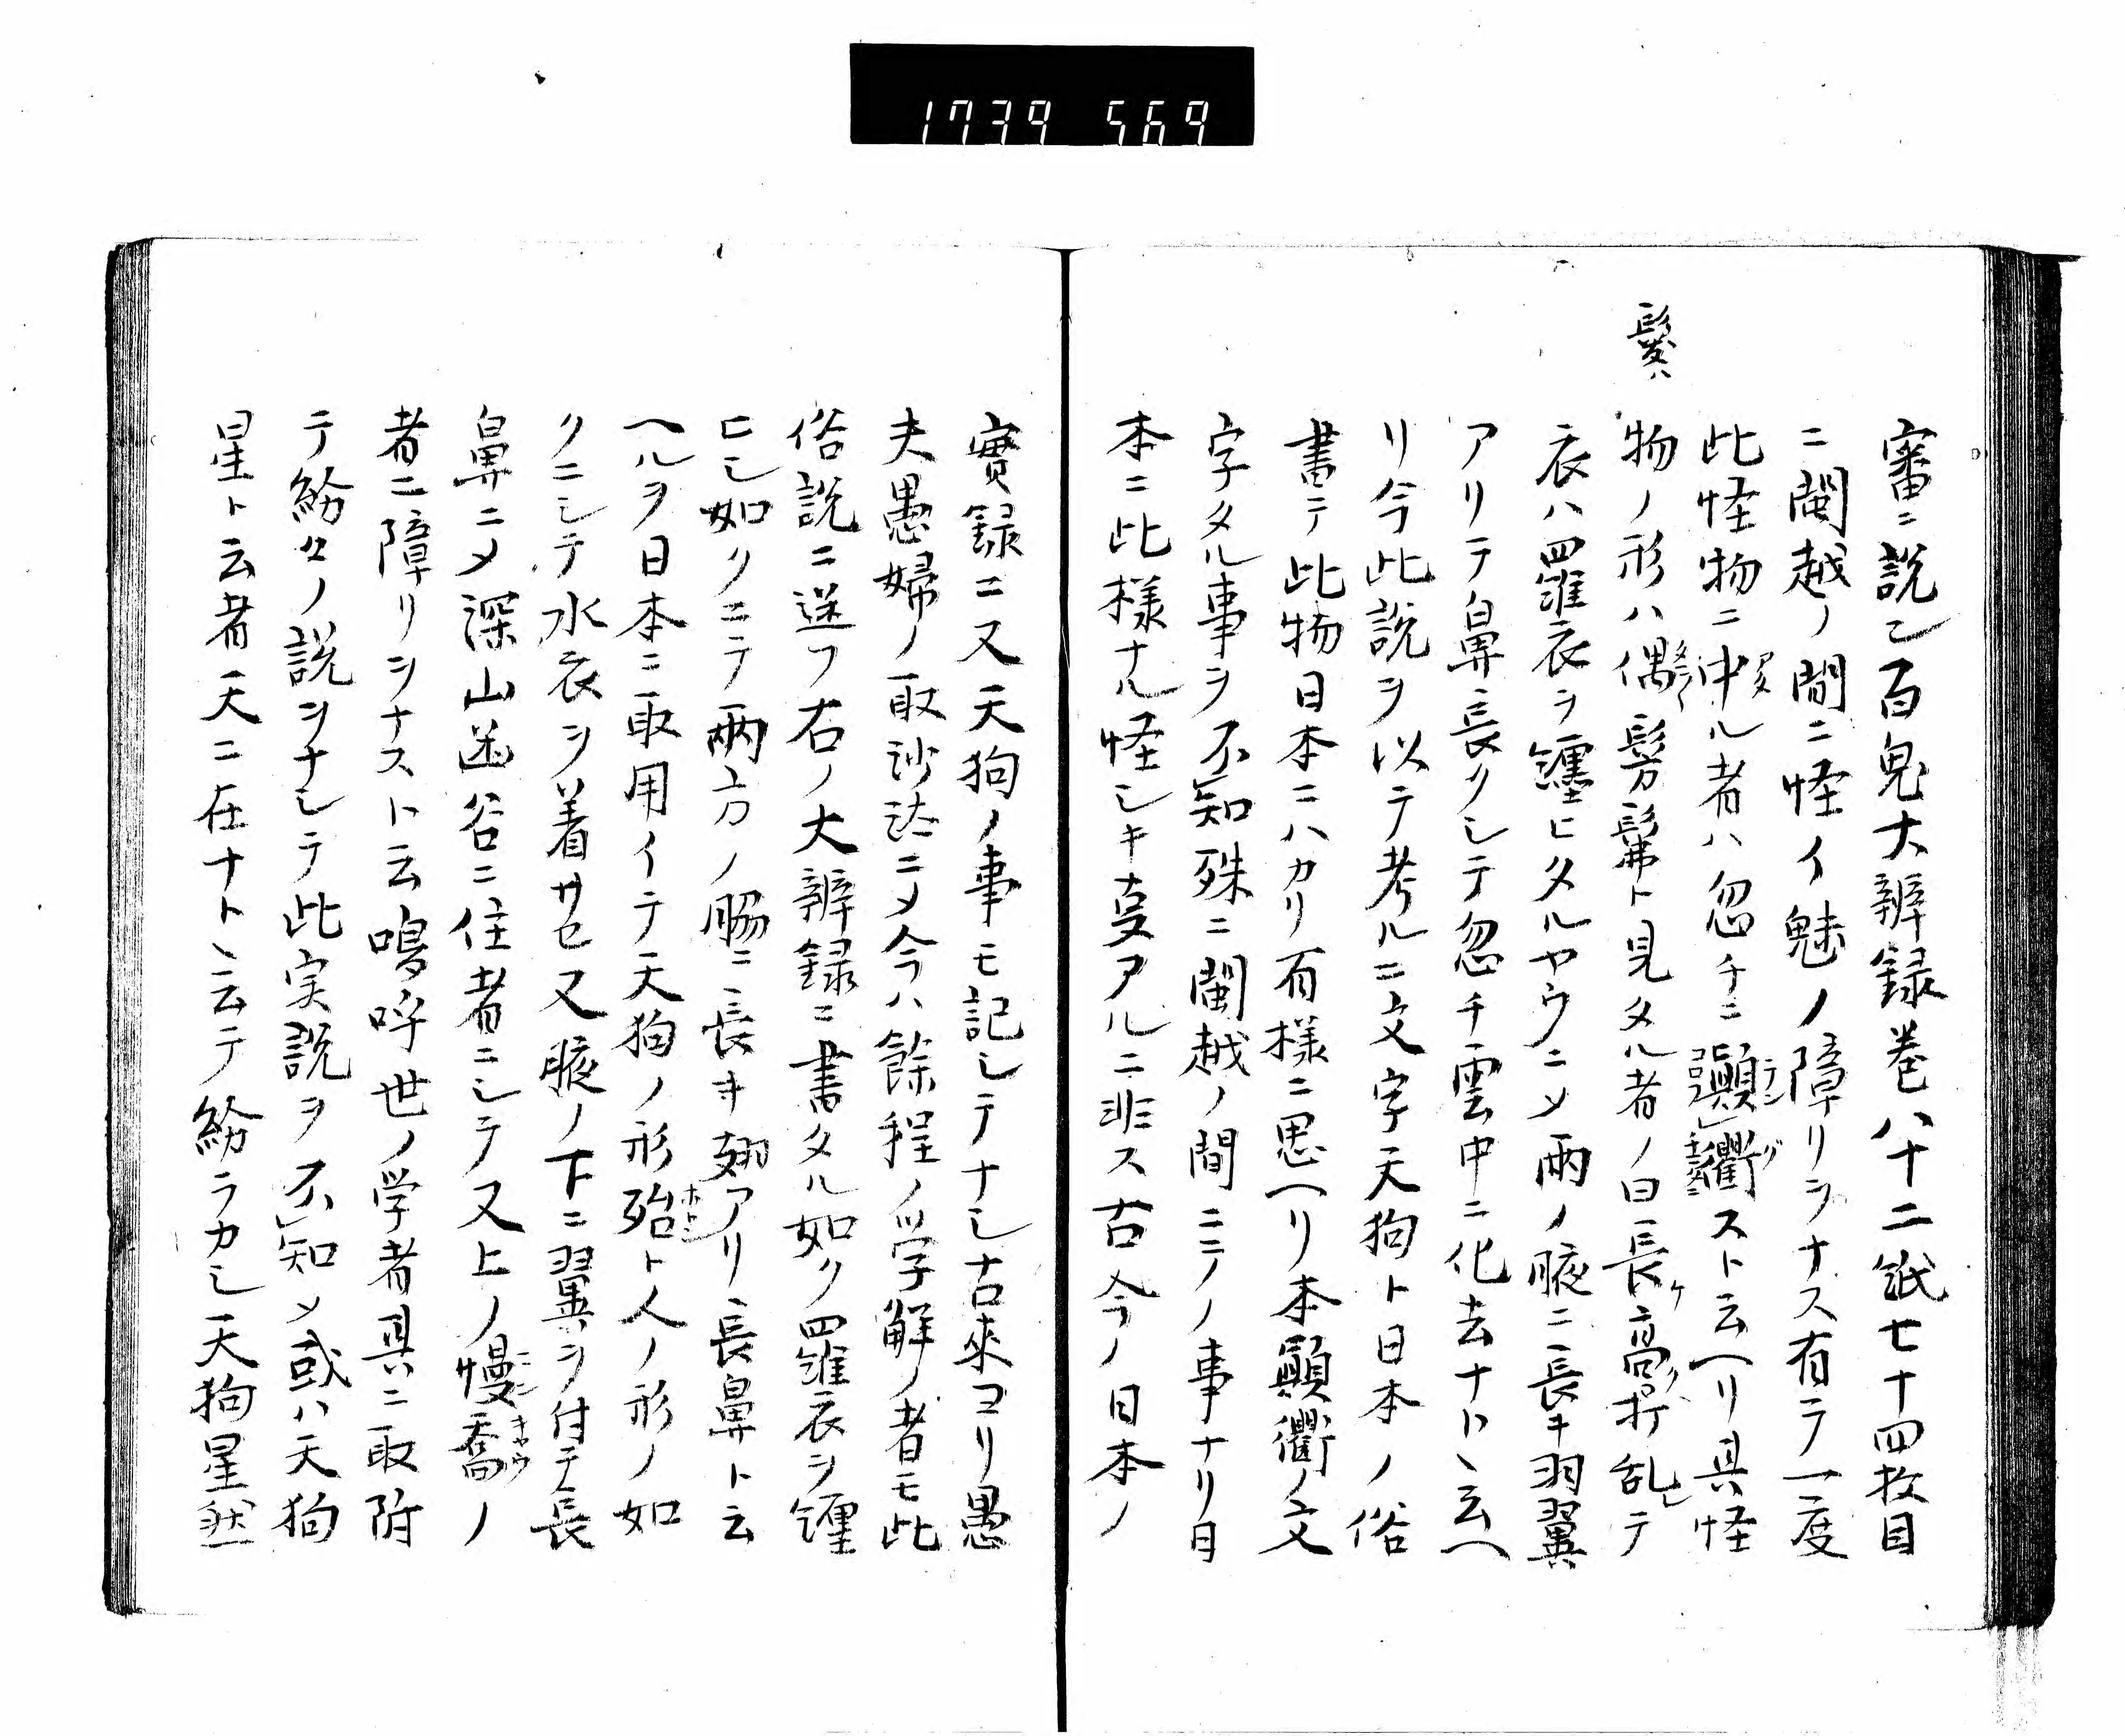 1739 569
髪ハ
審ニ説シ百鬼大辨録巻八十二紙七十四枚目
ニ閩越ノ間ニ怪イ魅ノ障リヲナス有テ一度
此怪物ニ中ル者ハ忽チニ顛衢スト云ヘリ具怪
物ノ形ハ偶髣髴ト見タル者ノ曰長ケ高ク打乱シテ
衣ハ羅衣ヲ纏ヒタルヤウニメ両ノ腋ニ長キ羽翼
アリテ鼻長クシテ忽チ雲中ニ化去ナトヽ云ヘ
リ今此説ヲ以テ考ルニ文字天狗ト日本ノ俗
書テ此物日本ニハカリ有様ニ思ヘリ本顛衢ノ文
字タル事ヲ不知殊ニ閩越ノ間ニテノ事ナリ日
本ニ此様ナル怪シキ㕝アルニ非ス古今ノ日本ノ
實録ニ又天狗ノ事モ記シテナシ古來ヨリ愚
夫愚婦ノ取沙汰ニメ今ハ餘程ノ学解ノ者モ此
俗説ニ迷フ右ノ大辨録ニ書タル如ク羅衣ヲ纏
ヒシ如クニテ兩方ノ脇ニ長キ翅アリ長鼻ト云
ヘルヲ日本ニ取用イテ天狗ノ形殆ト人ノ形ノ如
クニシテ水衣ヲ着サセ又腋ノ下ニ翼ヲ付テ長
鼻ニメ深山幽谷ニ住者ニシテ又上ノ慢喬ノ
者ニ障リヲナスト云嗚呼世ノ学者具ニ取附
テ紛々ノ説ヲナシテ此実説ヲ不知メ或ハ天狗
星ト云者天ニ在ナトヽ云テ紛ラカシ天狗星然